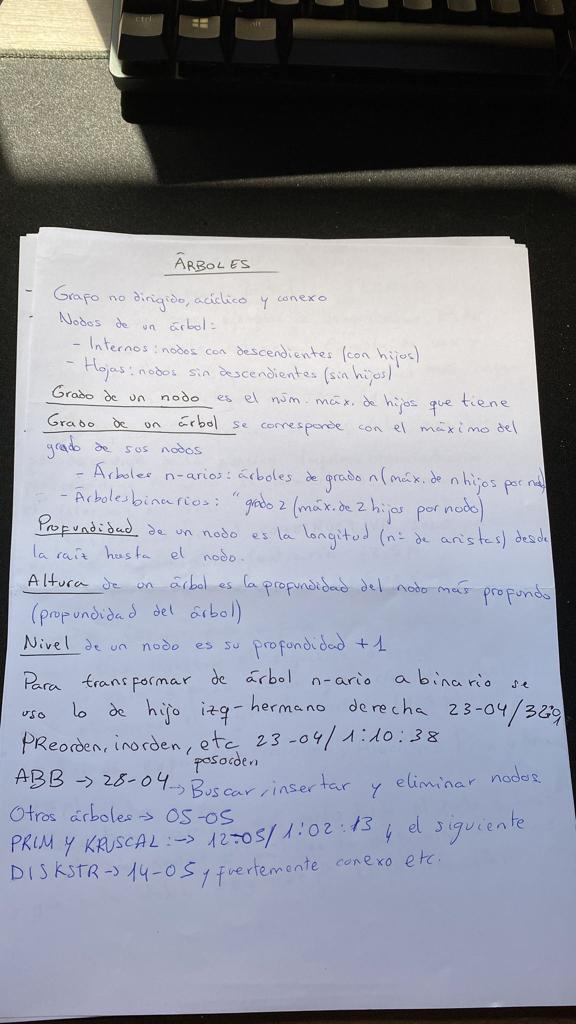 ctrl
alt
ÁRBOLES
Grafo no dirigido, acíclico y conexo
Nodos de un árbol:
- Internos: nodos con descendientes (con hijos)
- Hojas: nodos sin descendientes (sin hijos)
Grado de un nodo es el núm. máx. de hijos que tiene
Grado de un árbol se corresponde con el máximo del
grado de sus nodos
- Árboles n-arios: árboles de grado n (máx. de n hijos por nodo)
- Árboles binarios: " grado 2 (máx. de 2 hijos por nodo)
Profundidad de un nodo es la longitud (nº de aristas) desde
la raíz hasta el nodo.
Altura de un árbol es la profundidad del nodo más profundo
(profundidad del árbol)
Nivel de un nodo es su profundidad +1
Para transformar de árbol n-ario a binario se
uso lo de hijo izq-hermano derecha 23-04/
PReorden, inorden, etc 23-04/1:10:38
posorden
ABB → 28-04 → Buscar, insertar y eliminar nodos
Otros árboles → 05-05
PRIM Y KRUSCAL: → 12-05/1:02:13 y el siguiente
DISKSTR → 14-05 y fuertemente conexo etc.